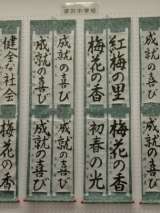 紅梅の里
成就の喜び
成就の喜び
健全な社会
梅花の香
梅花の香
初春の光
成就の喜び
成就の喜び
梅花の香